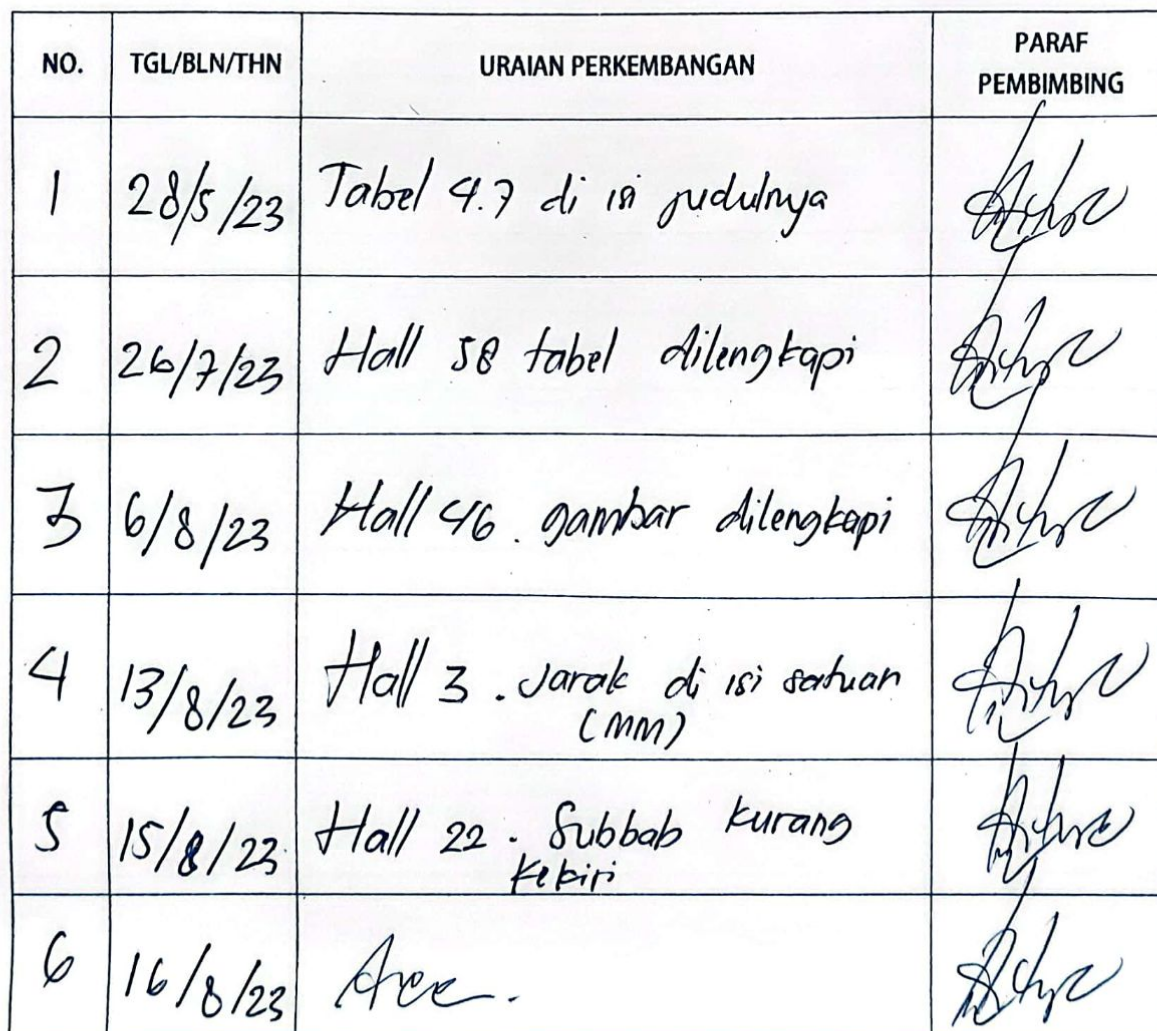 NO. TGL/BLN/THN URAIAN PERKEMBANGAN PARAF PEMBIMBING
1 28/5/23 Tabel 4.7 di isi judulnya
2 26/7/23 Hall 58 tabel dilengkapi
3 6/8/23 Hall 46. gambar dilengkapi
4 13/8/23 Hall 3. Jarak di isi satuan
(MM)
5 15/8/23 Hall 22. Subbab kurang
kekiri
6 16/8/23 Acc.